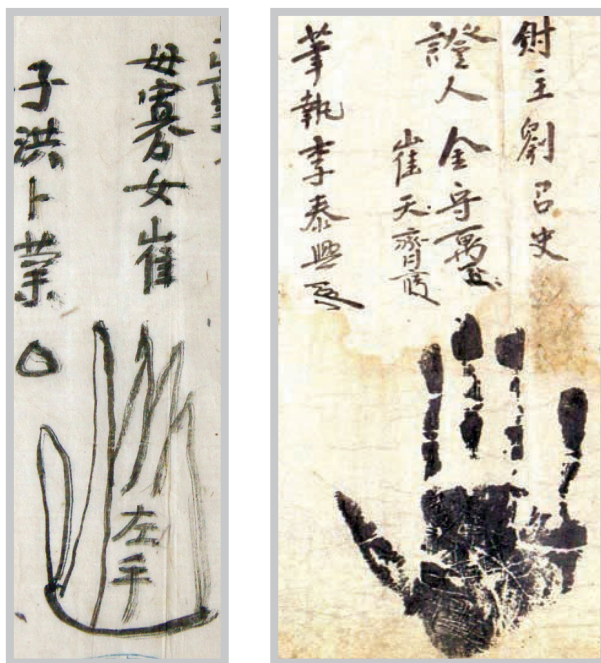 母寡女崔
子洪卜業
左手
財主劉召史
證人 金守萬
崔天齊
筆執李泰興